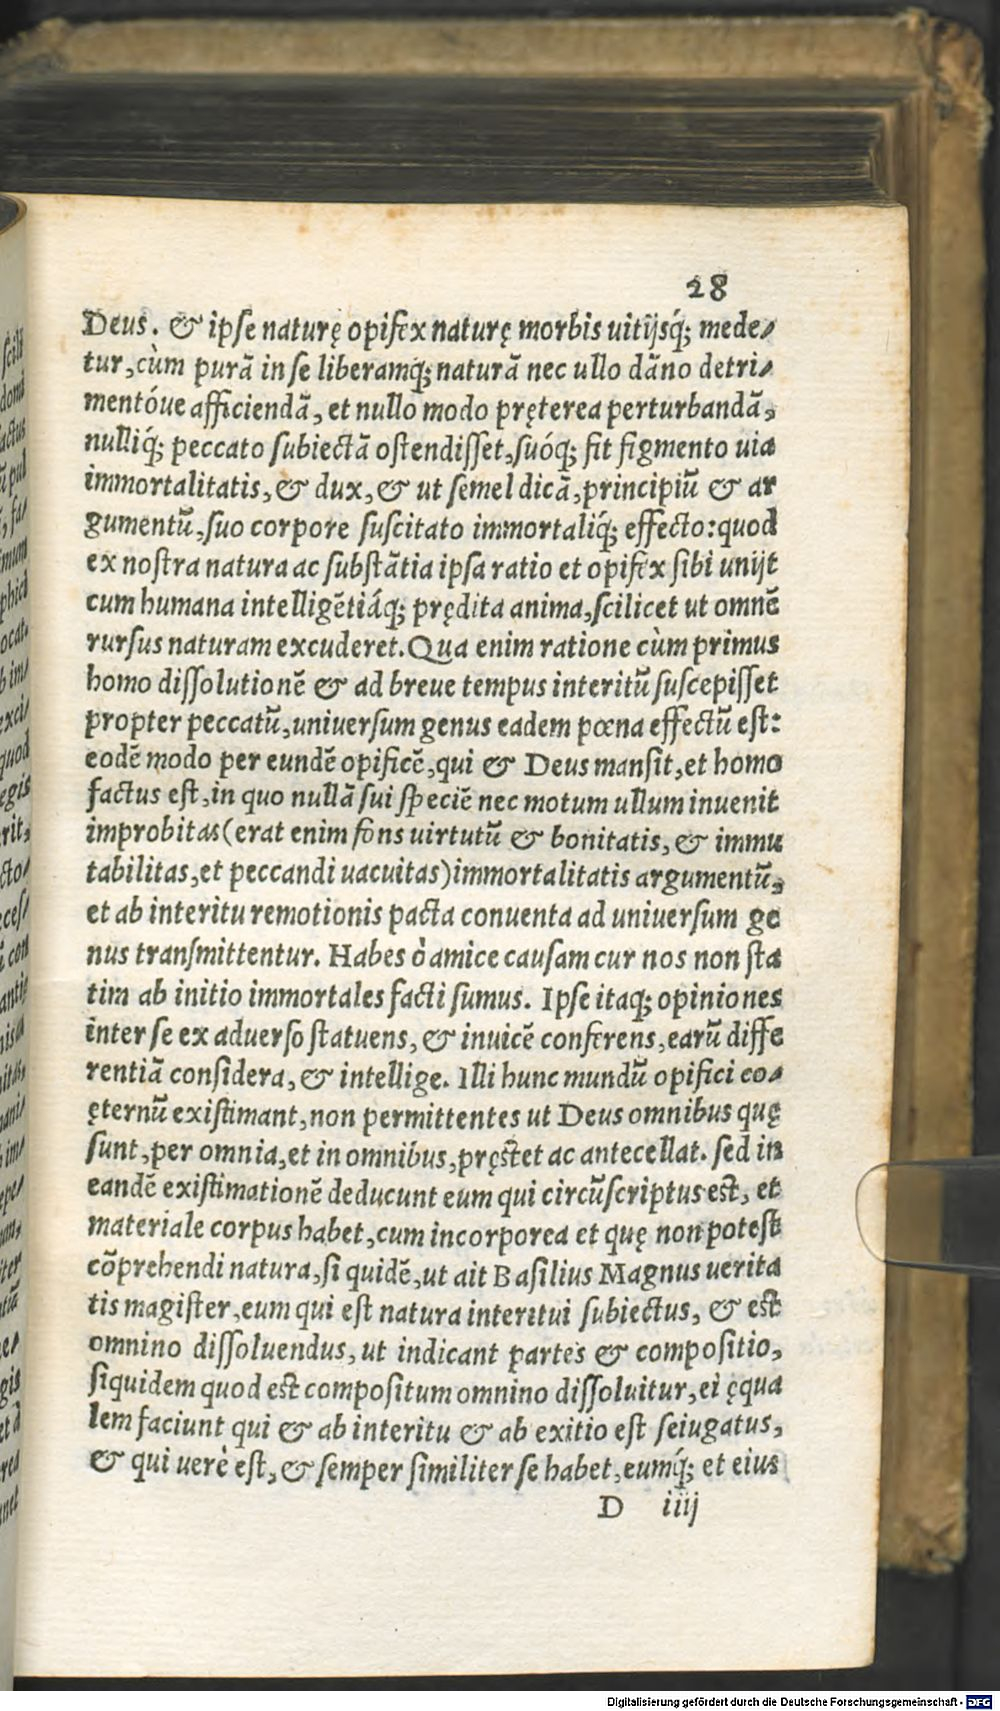 28
Deus. & ipse naturę opifex naturę morbis uitijsq́; mede-
tur, cùm purā in se liberamq; naturā nec ullo dāno detri-
mentóue afficiendā, et nullo modo pręterea perturbandā,
nulliq́; peccato subiectā ostendisset, suóq; fit figmento uia
immortalitatis, & dux, & ut semel dicā, principiū & ar
gumentū, suo corpore suscitato immortaliq́; effecto: quod
ex nostra natura ac substātia ipsa ratio et opifex sibi unijt
cum humana intelligētiáq; prędita anima, scilicet ut omnē
rursus naturam excuderet. Qua enim ratione cùm primus
homo dissolutionē & ad breue tempus interitū suscepisset
propter peccatū, uniuersum genus eadem pœna effectū est:
eodē modo per eundē opificē, qui & Deus mansit, et homo
factus est, in quo nullā sui speciē nec motum ullum inuenit
improbitas (erat enim fons uirtutū & bonitatis, & immu
tabilitas, et peccandi uacuitas) immortalitatis argumentū,
et ab interitu remotionis pacta conuenta ad uniuersum ge
nus transmittentur. Habes ò amice causam cur nos non sta
tim ab initio immortales facti sumus. Ipse itaq; opiniones
inter se ex aduerso statuens, & inuicē conferens, earū diffe
rentiā considera, & intellige. Illi hunc mundū opifici co-
ęternū existimant, non permittentes ut Deus omnibus quę
sunt, per omnia, et in omnibus, pręstet ac antecellat. sed in
eandē existimationē deducunt eum qui circūscriptus est, et
materiale corpus habet, cum incorporea et quę non potest
cōprehendi natura, si quidē, ut ait Basilius Magnus uerita
tis magister, eum qui est natura interitui subiectus, & est
omnino dissoluendus, ut indicant partes & compositio,
siquidem quod est compositum omnino dissoluitur, ei ęqua
lem faciunt qui & ab interitu & ab exitio est seiugatus,
& qui uerè est, & semper similiter se habet, eumq́; et eius
D iiij
Digitalisierung gefördert durch die Deutsche Forschungsgemeinschaft - DFG